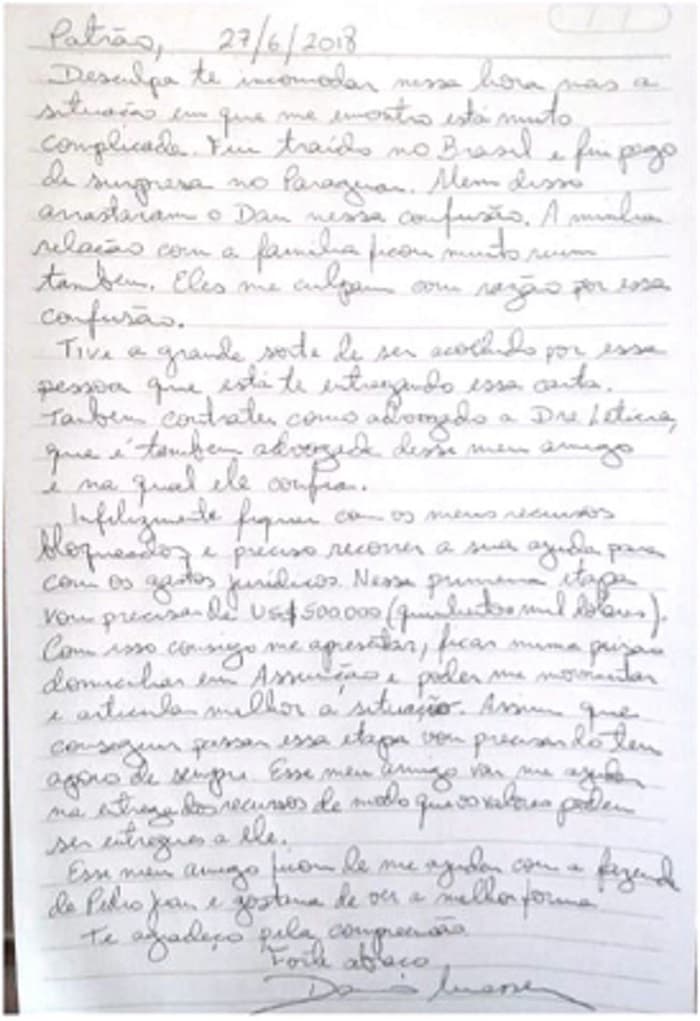 Patrão, 27/6/2018
Desculpa te incomodar nessa hora mas a
situação em que me encontro está muito
complicada. Fui traído no Brasil e fui pego
de surpresa no Paraguai. Alem disso
arrastaram o Dan nessa confusão. A minha
relação com a família ficou muito ruim
tambem. Eles me culpam com razão por essa
confusão.
Tive a grande sorte de ser acolhido por essa
pessoa que está te entregando essa carta.
Tambem contratei como advogado a Dra Leticia,
que é tambem advogada desse meu amigo
e na qual ele confia.
Infelizmente fiquei com os meus recursos
bloqueados e preciso recorrer a sua ajuda para
com os gastos jurídicos. Nessa primeira etapa
vou precisar de US$ 500.000 (quinhentos mil dolares).
Com isso consigo me apresentar, ficar numa prisão
domiciliar em Assunção e poder me movimentar
e articular melhor a situação. Assim que
conseguir passar essa etapa vou precisar do teu
apoio de sempre. Esse meu amigo vai me ajudar
na entrega dos recursos de modo que os valores podem
ser entregues a ele.
Esse meu amigo ficou de me ajudar com a fazenda
de Pedro Juan e gostaria de ver a melhor forma
Te agradeço pela compreensão
Forte abraço